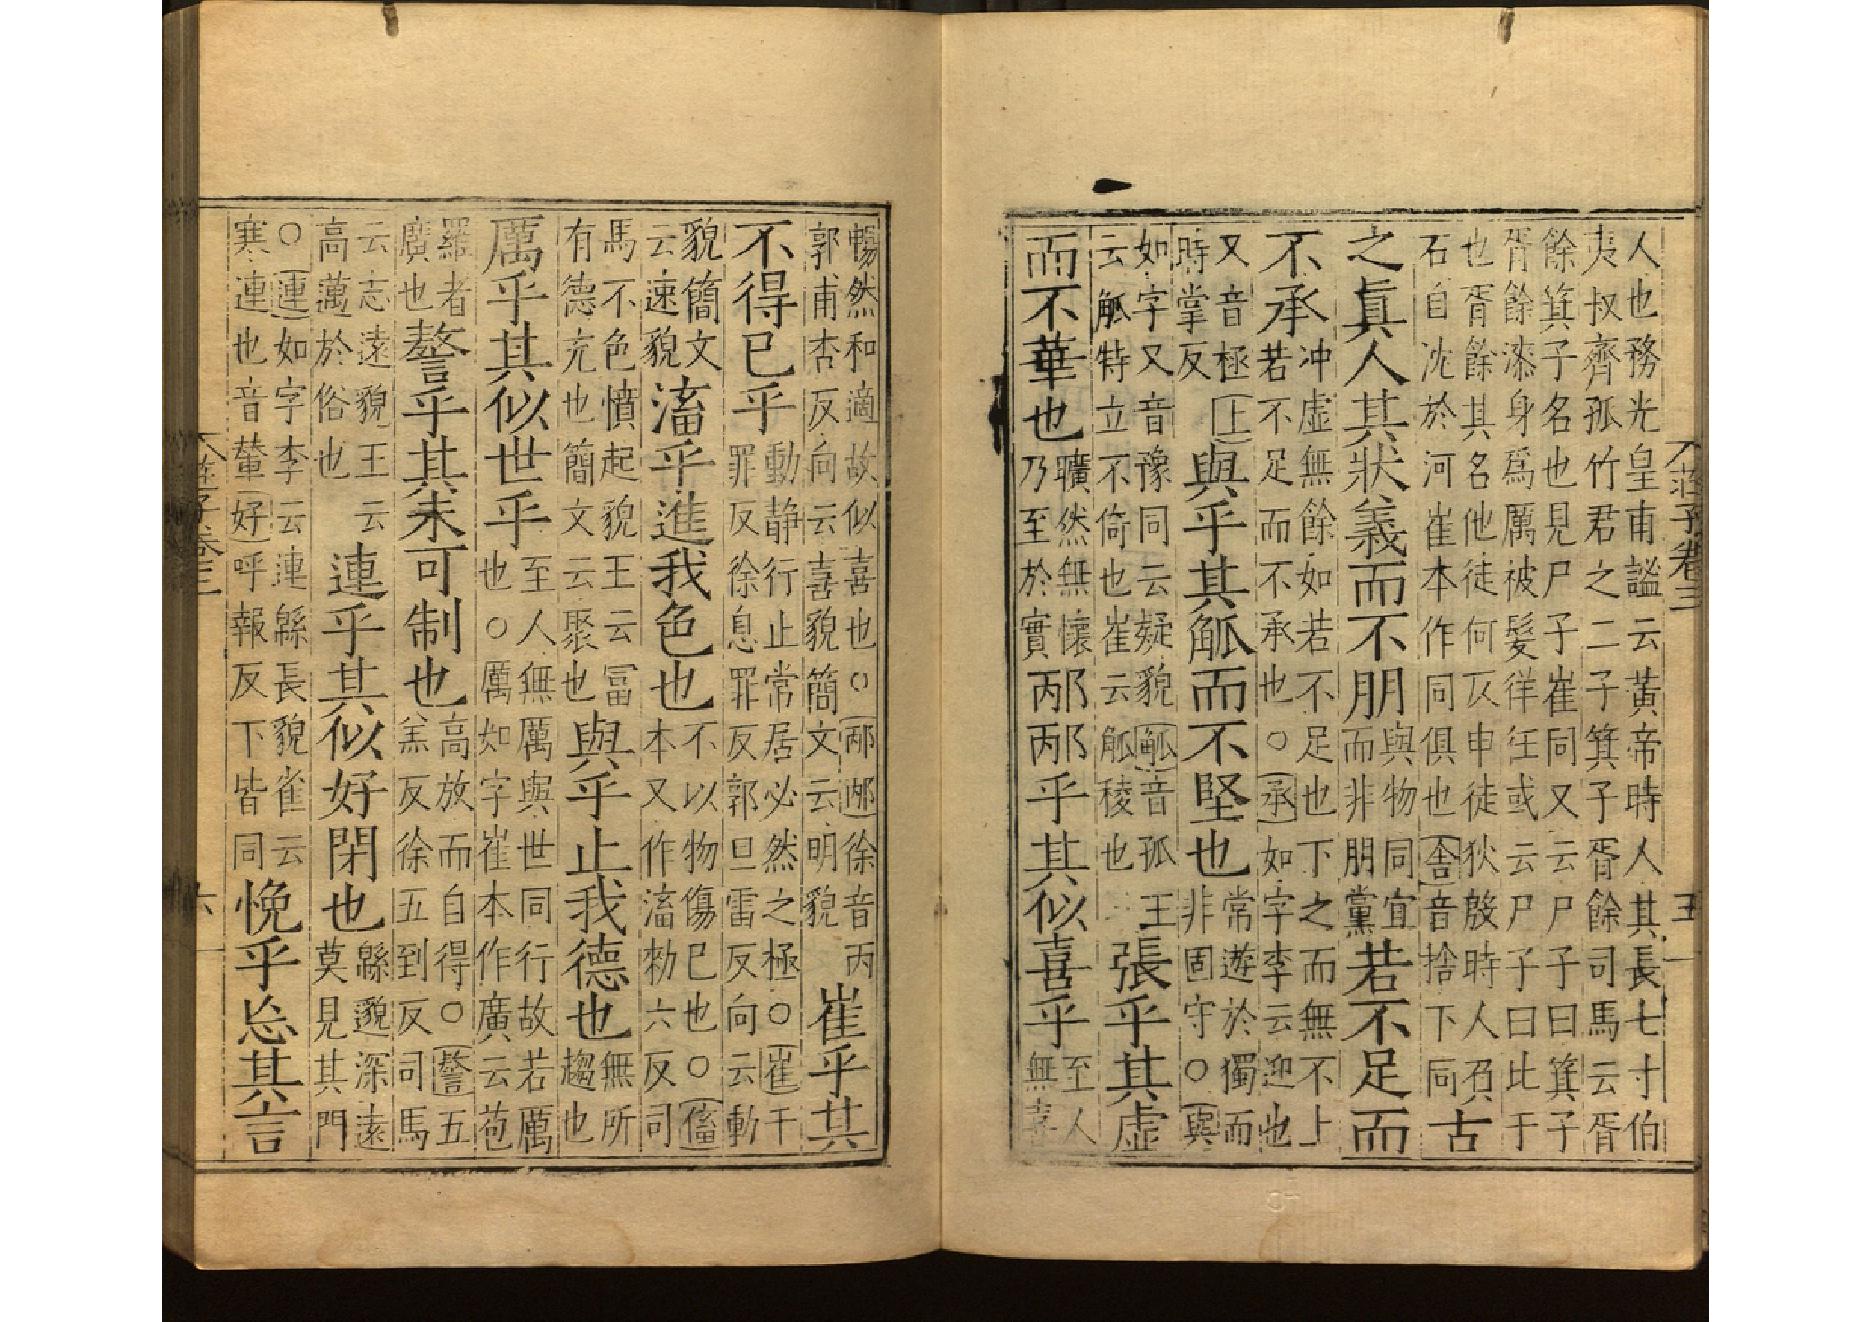 人也務光皇甫謐云黃帝時人其長七寸伯
夷叔齊孤竹君之二子箕子胥餘司馬云胥
餘箕子名也見尸子崔同又云尸子曰箕子
胥餘漆身爲厲被髮徉狂或云尸子曰比干
也胥餘其名他徒何仄申徒狄殷時人負
石自沈於河崔本作同俱也舍音捨下同
古
之眞人其狀義而不朋
與物同宜
而非朋黨
若不足而
不承
冲虛無餘如若不足也下之而無不上
若不足而不承也○承如字李云迎也
又音極上
時掌反
與乎其觚而不堅也
常遊於獨而
非固守○與
如字又音豫同云疑貌觚音孤王
云觚特立不倚也崔云觚稜也
張乎其虛
而不華也
曠然無懷
乃至於實
邴邴乎其似喜乎
至人
無喜
莊子卷三
五
暢然和適故似喜也○邴邴徐音丙
郭甫杏反向云喜貌簡文云明貌
崔乎其
不得已乎
動靜行止常居必然之極○崔干
罪反徐息罪反郭且雷反向云動
貌簡文
云速貌
滀乎進我色也
不以物傷已也○傗
本又作滀勑六反司
馬不色憤起貌王云冨
有德充也簡文云聚也
與乎止我德也
無所
趨也
厲乎其似世乎
至人無厲與世同行故若厲
也○厲如字崔本作廣云苞
羅者
廣也
謷乎其未可制也
高放而自得○謷五
羔反徐五到反司馬
云志遠貌王云
高邁於俗也
連乎其似好閉也
緜邈深遠
莫見其門
○連如字李云連緜長貌崔云
寒連也音輦好呼報反下皆同
悗乎忘其言
莊子卷三
六